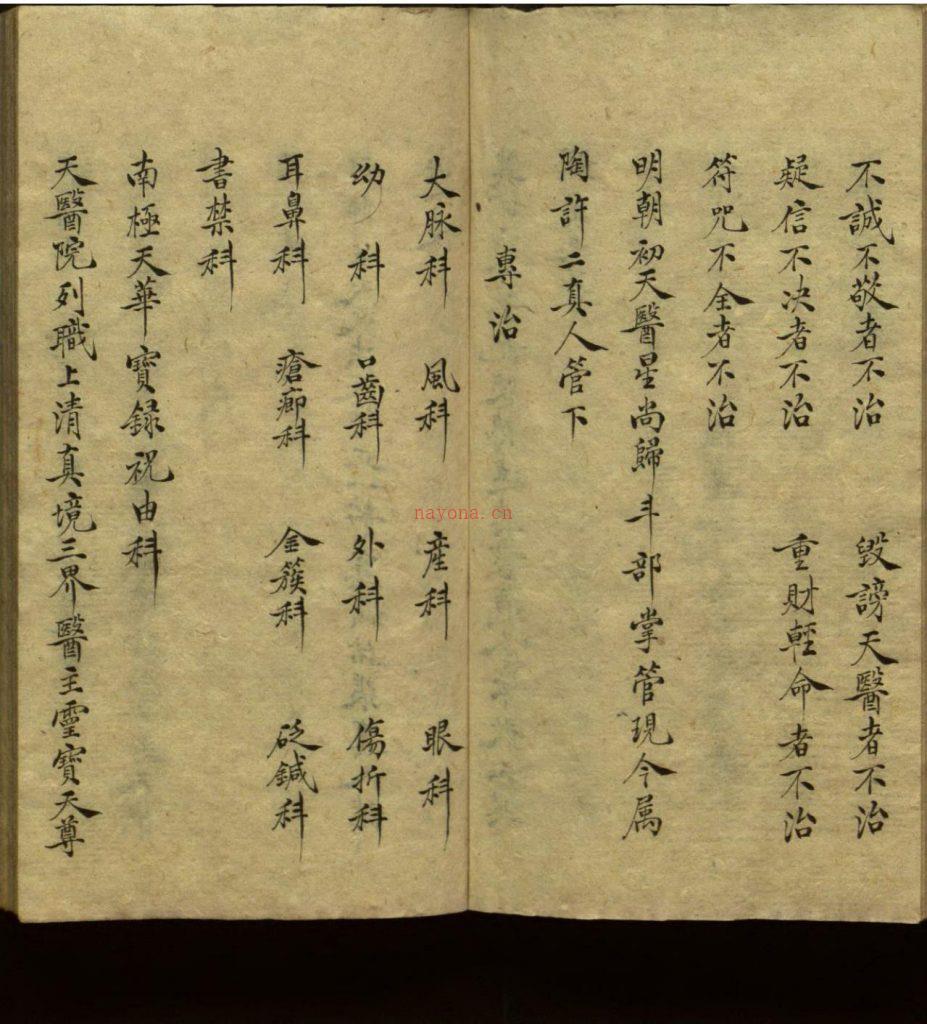 不誠不敬者不治　毀謗天醫者不治
疑信不决者不治　重財輕命者不治
符咒不全者不治
明朝初天醫星尚歸斗部掌管現今属
陶許二真人管下
專治
大脉科　風科　産科　眼科
幼科　口齒科　外科　傷折科
耳鼻科　瘡癤科　金簇科　砭鍼科
書禁科
南極天華寶録祝由科
天醫院列職上清真境三界醫主靈寶天尊
nayona.cn